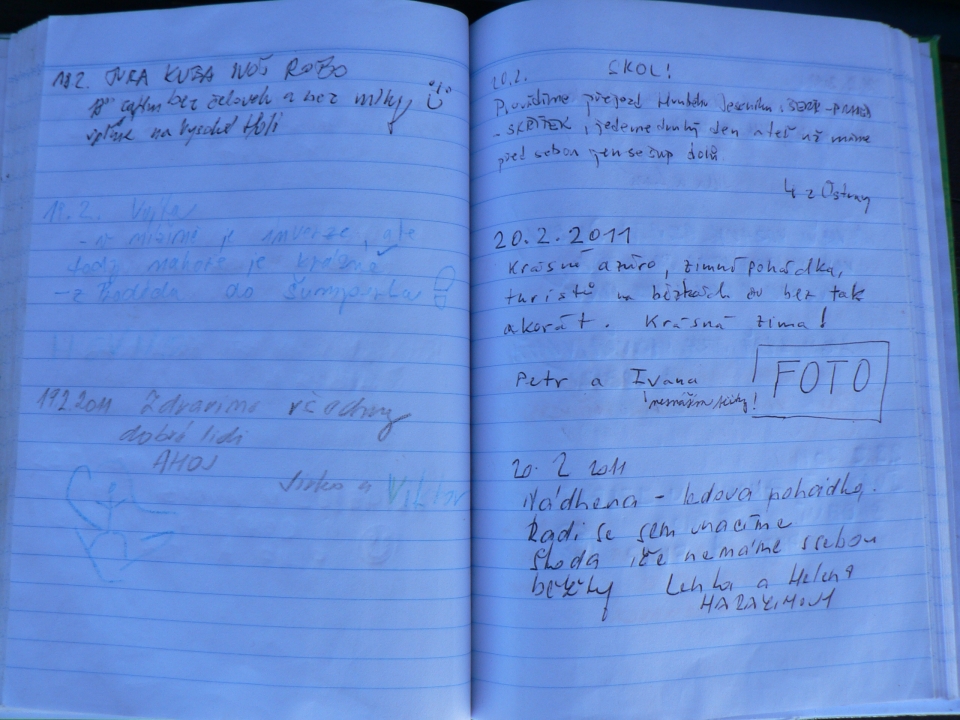 18.2. JURA KUBA NOŠ ROBO
bez čelovek a bez mlhy
na Vysoké Holi
18.2. Vojta
- v nížině je inverze, ale
tady nahoře je krásně
do Šumperka
19.2.2011 Zdravíme všechny
dobré lidi
AHOJ
Jirko a Viktor
20.2. SKOL!
Provádíme přejezd Hrubého Jeseníku
- SKŘÍTEK, jedeme druhý den a teď už máme
před sebou jen sešup dolů.
4 z Ostravy
20.2.2011
Krásné azúro, zimní pohádka,
turistů na běžkách bez tak
akorát. Krásná zima!
Petr a Ivana
FOTO
20. 2 2011
Nádhena - ledová pohádka.
Rádi se sem vracíme
Škoda že nemáme s sebou
běžky Lenka a Helena